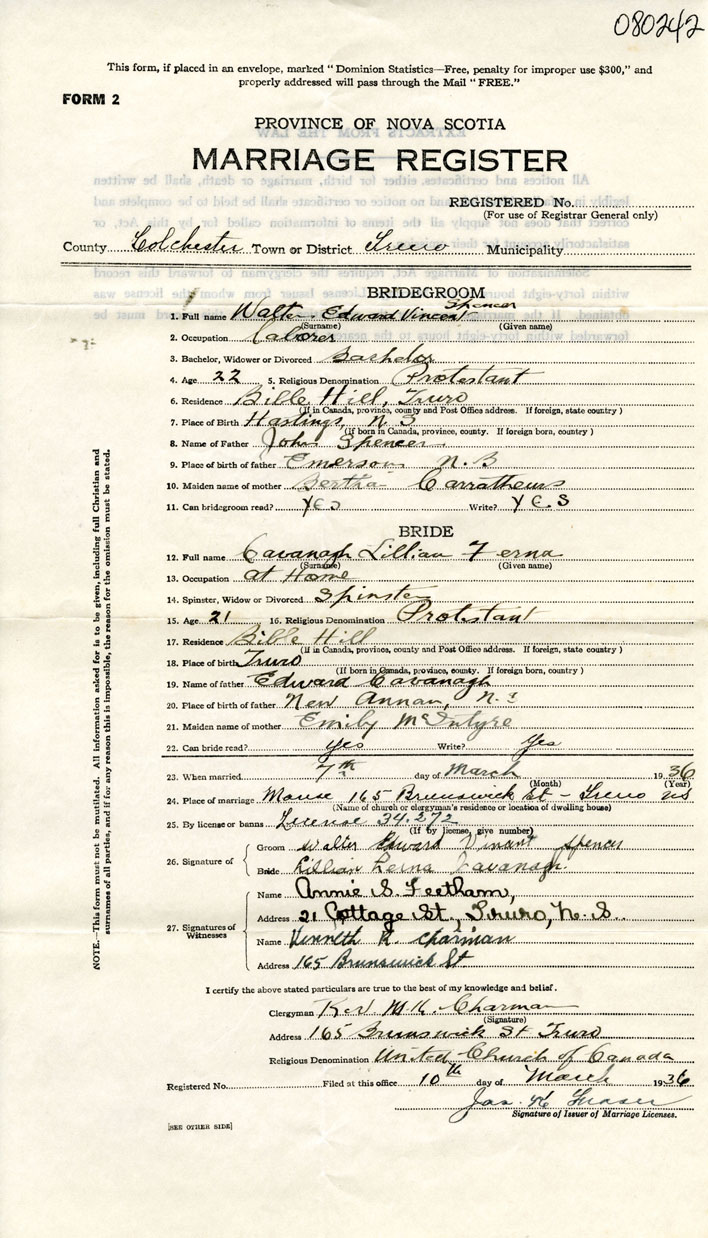 080242
This form, if placed in an envelope, marked "Dominion Statistics—Free, penalty for improper use $300," and
properly addressed will pass through the Mail "FREE."
FORM 2
PROVINCE OF NOVA SCOTIA
MARRIAGE REGISTER
REGISTERED No.
(For use of Registrar General only)
County Colchester Town or District Truro Municipality
BRIDEGROOM
Spencer
1. Full name Walter Edward Vincent
(Surname) (Given name)
2. Occupation Laborer
3. Bachelor, Widower or Divorced Bachelor
4. Age 22 5. Religious Denomination Protestant
6. Residence Bible Hill, Truro
(If in Canada, province, county and Post Office address. If foreign, state country)
7. Place of Birth Hastings, N S
(If born in Canada, province, county. If foreign born, country)
8. Name of Father John Spencer
9. Place of birth of father Emerson N. B
10. Maiden name of mother Bertha Carratheurs
11. Can bridegroom read? Yes Write? Yes
BRIDE
12. Full name Cavanagh Lillian Ferna
(Surname) (Given name)
13. Occupation at Home
14. Spinster, Widow or Divorced Spinster
15. Age 21 16. Religious Denomination Protestant
17. Residence Bible Hill
(If in Canada, province, county and Post Office address. If foreign, state country)
18. Place of birth Truro
(If born in Canada, province, county. If foreign born, country)
19. Name of father Edward Cavanagh
20. Place of birth of father New Annan, N.S
21. Maiden name of mother Emily McIntyre
22. Can bride read? yes Write? Yes
23. When married 7th day of March 1936
(Month) (Year)
24. Place of marriage Manse 165 Brunswick St - Truro NS
(Name of church or clergyman's residence or location of dwelling house)
25. By license or banns License 34.272
(If by license, give number)
26. Signature of
Groom Walter Edward Vincent Spencer
Bride Lillian Ferna Cavanagh.
27. Signatures of Witnesses
Name Annie S. Feetham,
Address 21 Cottage St., Truro, N. S.
Name Kenneth R. Charman
Address 165 Brunswick St
I certify the above stated particulars are true to the best of my knowledge and belief.
Clergyman Rev. M. R. Charman
(Signature)
Address 165 Brunswick St Truro
Religious Denomination United Church of Canada
Registered No. Filed at this office 10th day of March 1936
Jas. Fraser
Signature of Issuer of Marriage Licenses.
[SEE OTHER SIDE]
NOTE.—This form must not be mutilated. All information asked for is to be given, including full Christian and
surnames of all parties, and if for any reason this is impossible, the reason for the omission must be stated.